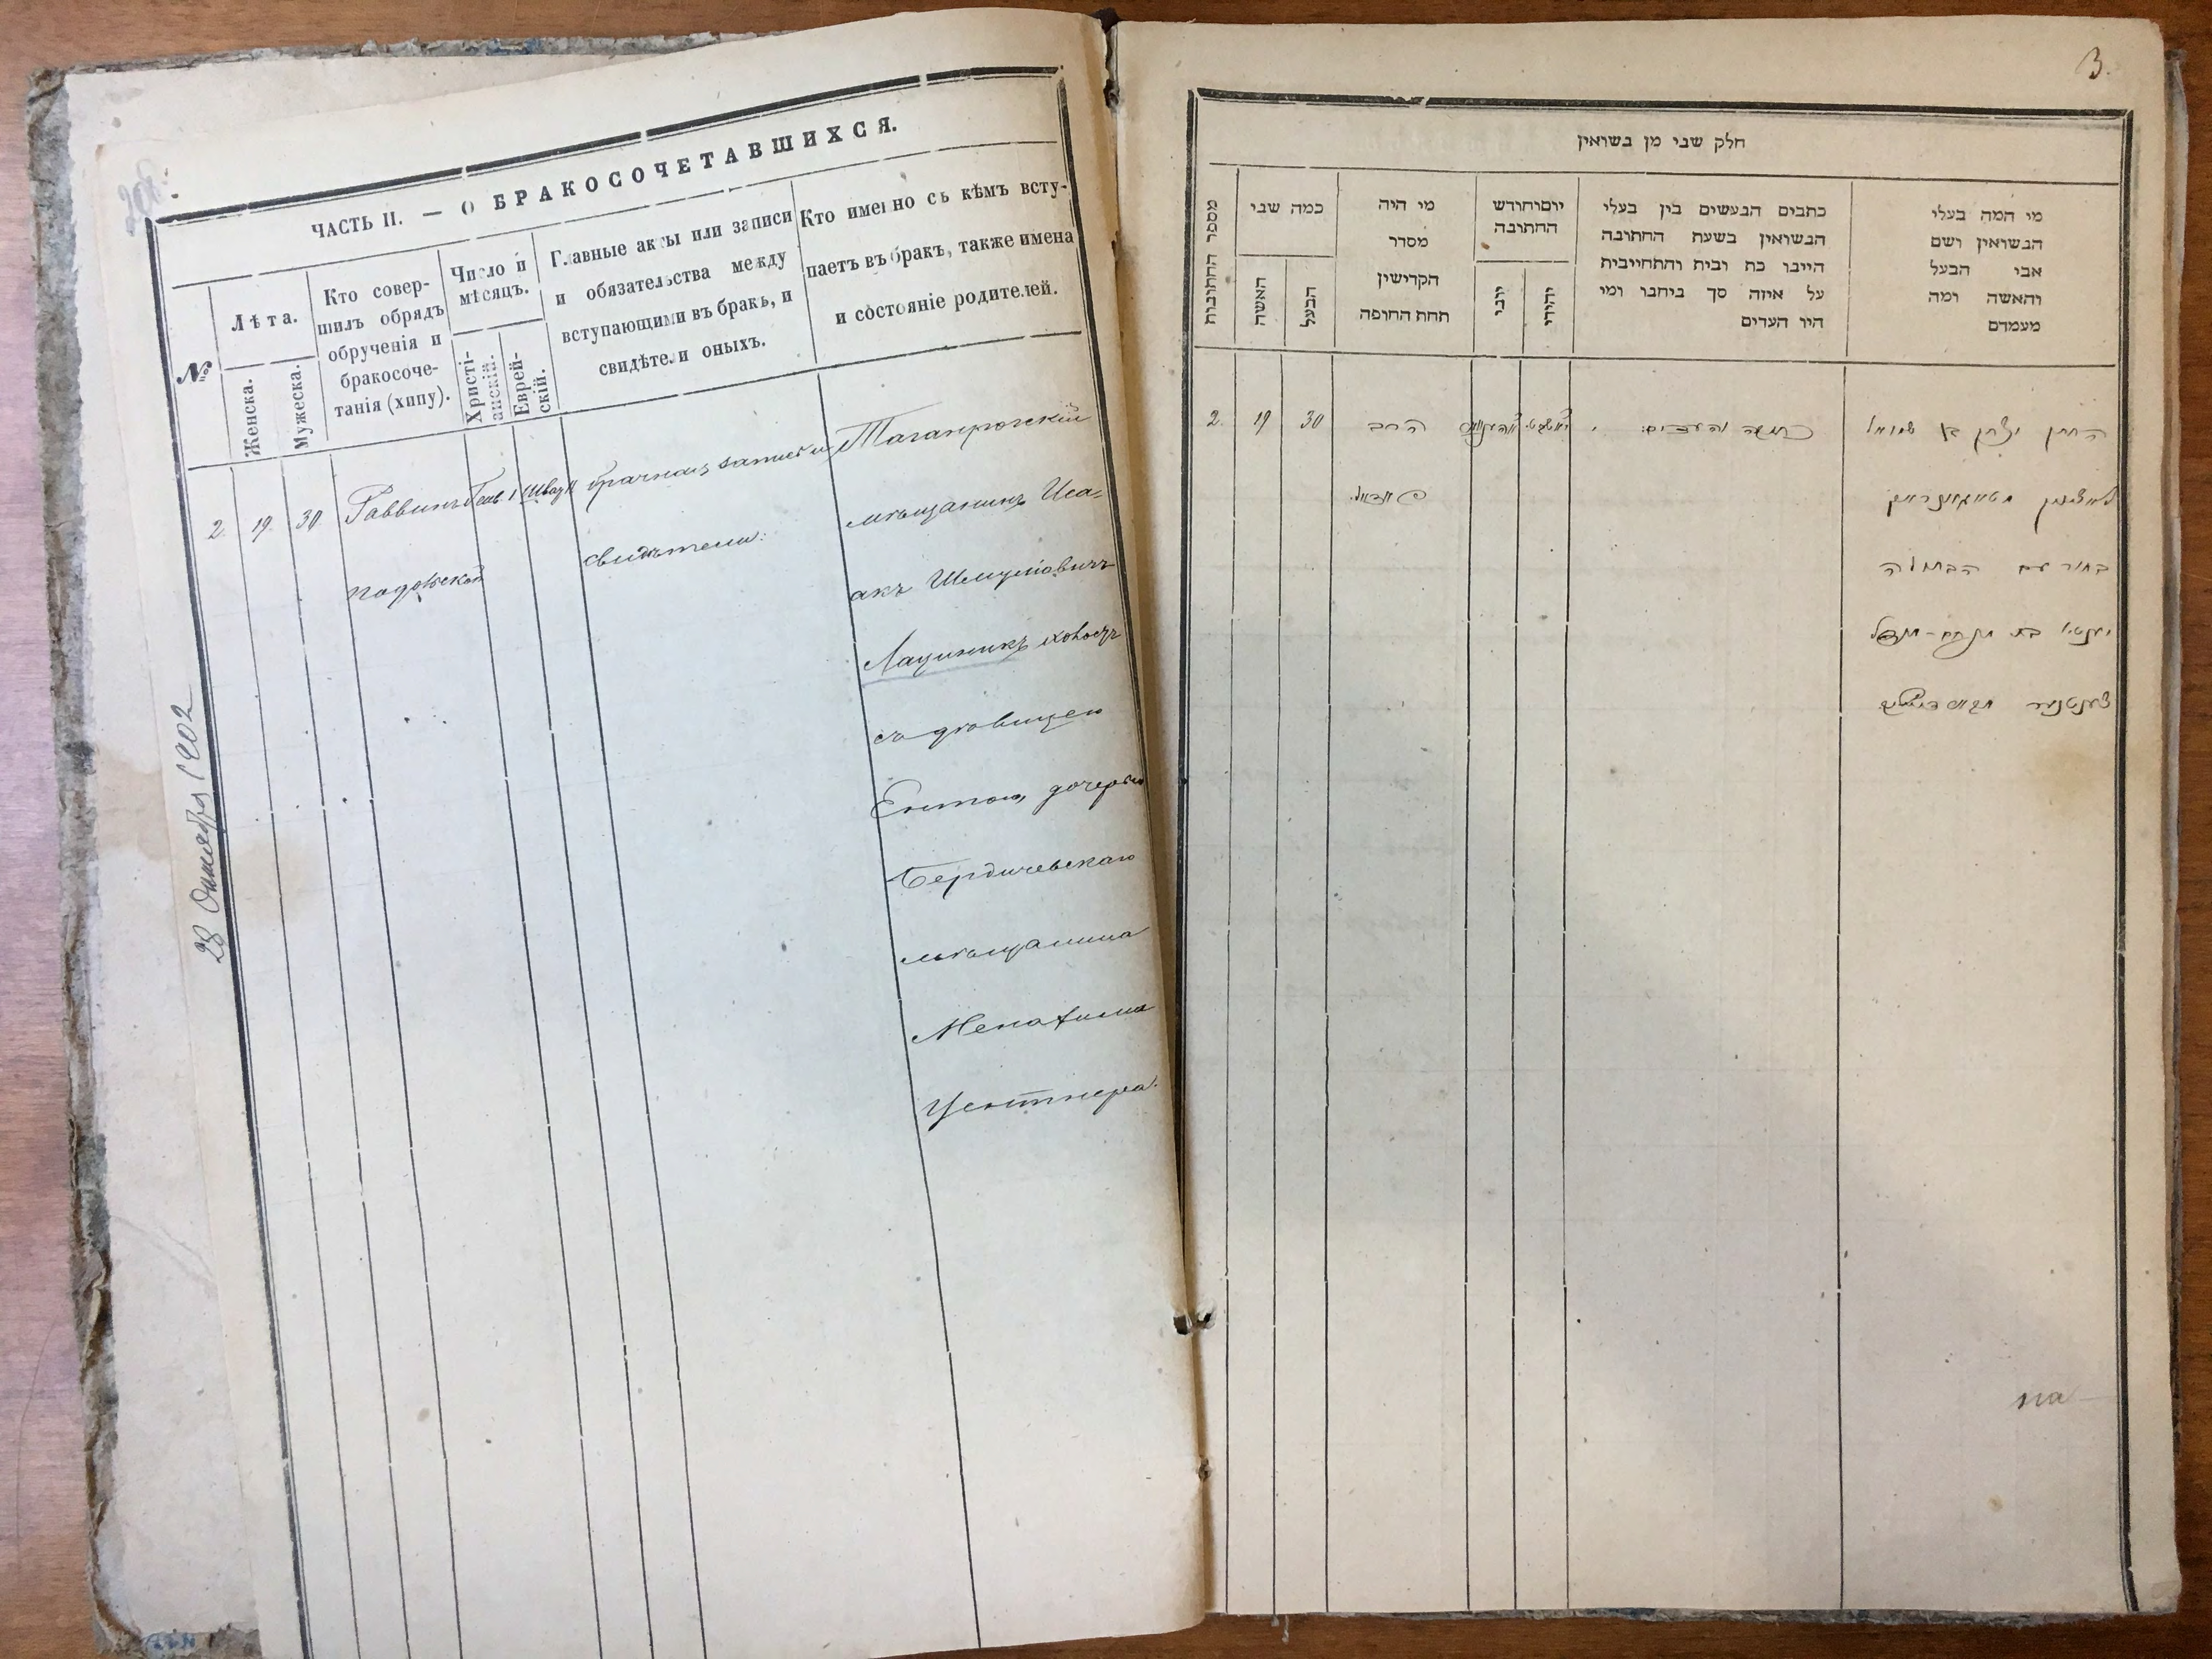 ЧАСТЬ II. — О БРАКОСОЧЕТАВШИХСЯ.
№
Лѣта.
Женска.
Мужеска.
Кто совер-
шилъ обрядъ
обрученія и
бракосоче-
танія (хипу).
Число и
мѣсяцъ.
Христі-
анскій.
Еврей-
скій.
Главные акты или записи
и обязательства между
вступающими въ бракъ, и
свидѣтели оныхъ.
Кто именно съ кѣмъ всту-
паетъ въ бракъ, также имена
и состояніе родителей.
2 19 30
Раввинъ
брачная записи
свидѣтели:
Таганрогскій
мѣщанинъ Иса-
акъ Шмулiовичъ
Лацинникъ холостъ
съ дѣвицею
Ентою, дочерью
Бердичевскаго
мѣщанина
Менахима
Центнера.
28 Октября 1902
3.
חלק שני מן נשואין
מספר החתונות
כמה שני
האשה
הבעל
מי היה
מסדר
הקדישין
תחת החופה
יום וחודש
החתונה
יוני
יהודי
כתבים הנעשים בין בעלי
הנשואין בשעת החתונה
היינו כת ובית והתחייבית
על איזה סך ביחנו ומי
היו העדים
מי המה בעלי
הנשואין ושם
אבי הבעל
והאשה ומה
מעמדם
2 19 30
הרב
כתובה והעדים:
החתן יצחק בן שמואל
בחור עם הבתולה
יענטא בת מנחם-מענדל
צענטנער